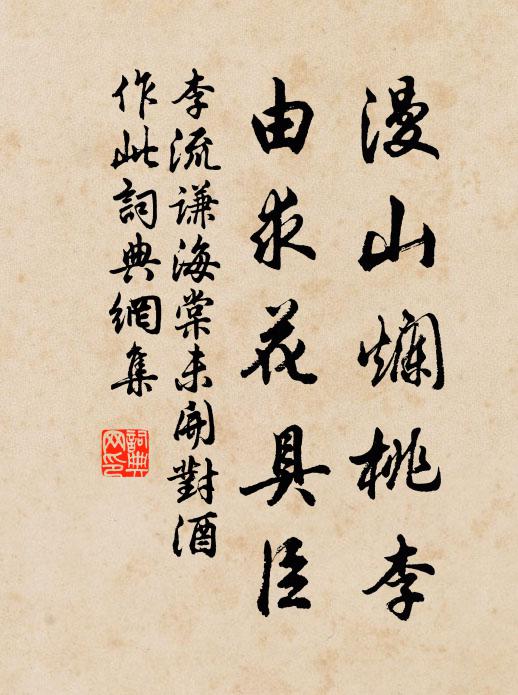 漫山爛桃李
由求花具臣
李流谦海棠未開對酒
作此詞典網集
詞典网印